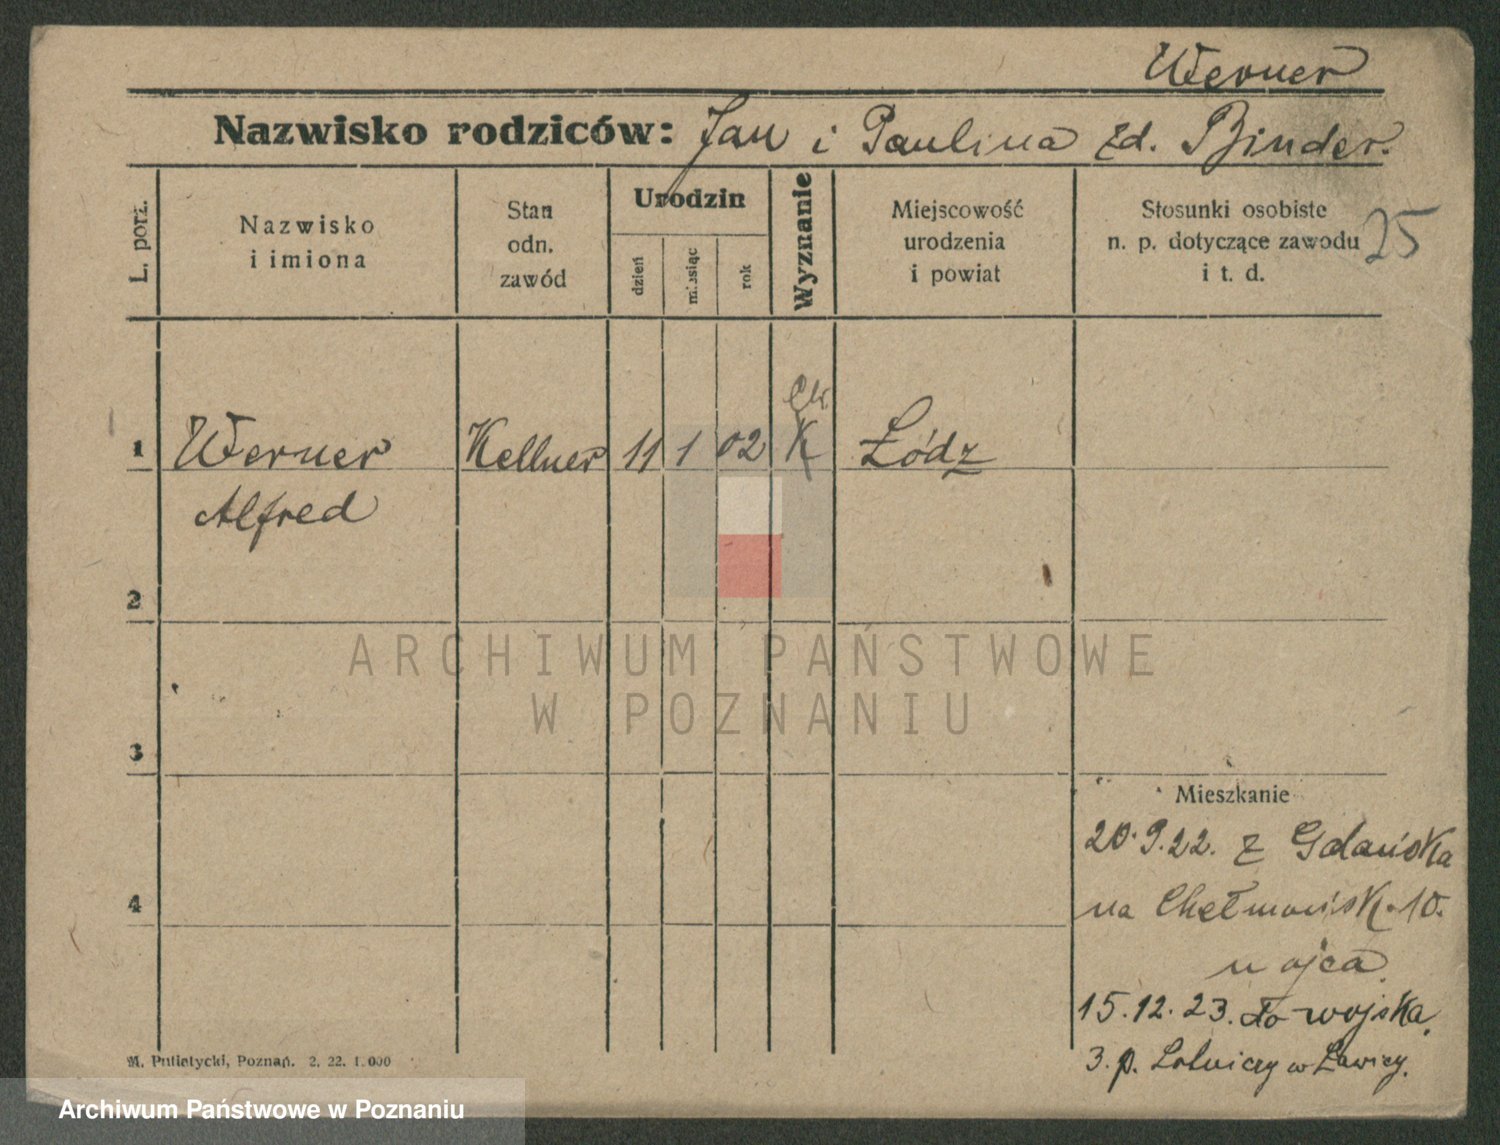 Werner
Nazwisko rodziców: Jan i Paulina zd. Binder.
L. porz.
Nazwisko i imiona
Stan odn. zawód
Urodzin
dzień
miesiąc
rok
Wyznanie
Miejscowość urodzenia i powiat
Stosunki osobiste n. p. dotyczące zawodu i t. d.
25
1 Werner Kellner 11 1 02 K Łódz
Alfred
2
3
4
Mieszkanie
20.9.22. z Gdańska
na Chełmońsk. 10.
u ojca.
15.12.23. do wojska.
3. p. Lotniczy w Ławicy.
M. Putiatycki, Poznań. 2. 22. 1.000
ARCHIWUM PAŃSTWOWE
W POZNANIU
Archiwum Państwowe w Poznaniu